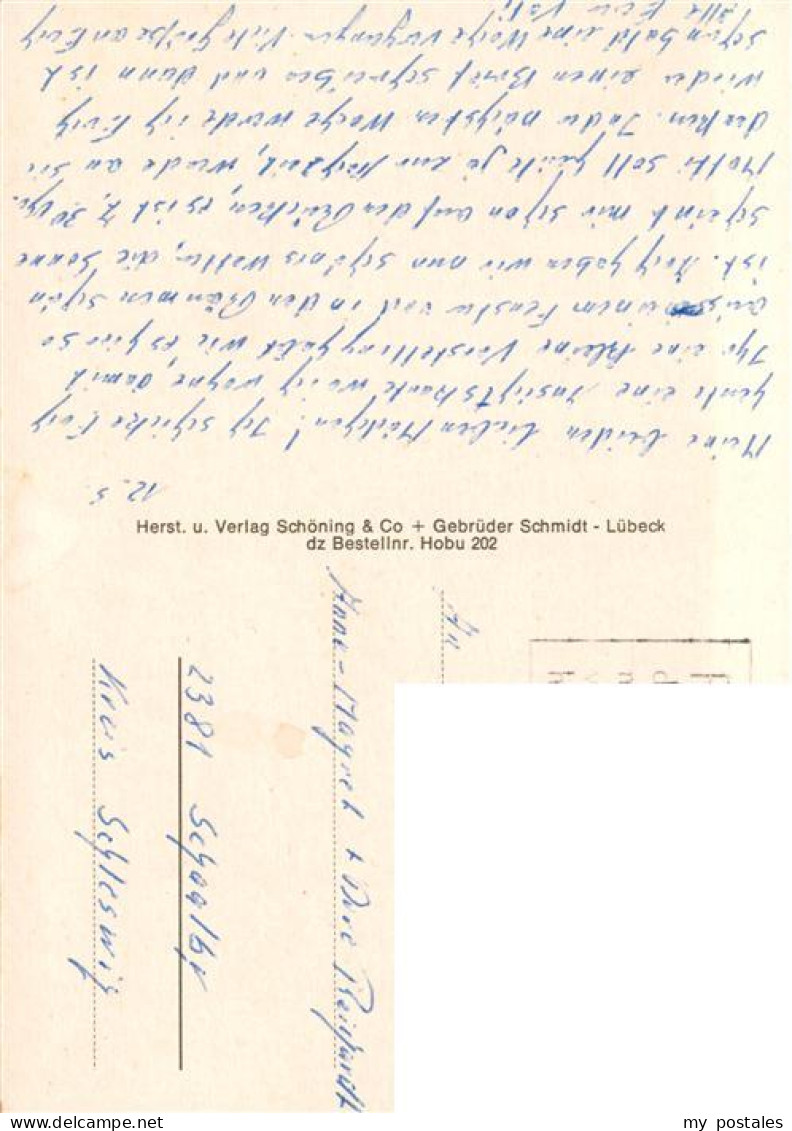 12. 5.
Meine beiden lieben Mädchen! Ich schicke Euch
heute eine Ansichtskarte wo ich wohne, damit
Ihr eine kleine Vorstellung habt wie es hier so
aus meinem Fenster und in den Bäumen schön
ist. Noch haben wir nun schönes Wetter, die Sonne
scheint mir schon auf den Rücken, es ist 7,30 Uhr.
soll heute ja zur Hochzeit, werde an sie
denken. In der nächsten Woche werde ich Euch
wieder einen Brief schreiben und dann ist
schon bald eine Woche vergangen. Viele Grüße an Euch
alle Euer Vati
Herst. u. Verlag Schöning & Co + Gebrüder Schmidt - Lübeck
dz Bestellnr. Hobu 202
An
Anne-Magret + Reichardt
2381 Schaalby
Kreis Schleswig
my postales